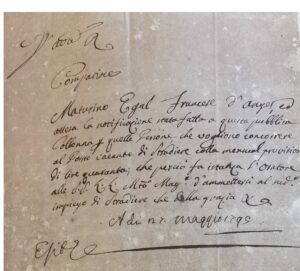 Comparisce
Maturino Egal Francese d'Anger, ed
attesa la notificazione stata fatta a questa pubblica
Colonna p quelle Persone che vogliono concorrere
al Posto vacante di Stradiere colla mensual provvisione
di lire quaranta; che perciò fa istanza l'Oratore
alle Mag.ci d'ammetterlo al med.o
impiego di Stradiere che della grazia &a
A dì Maggio 1795